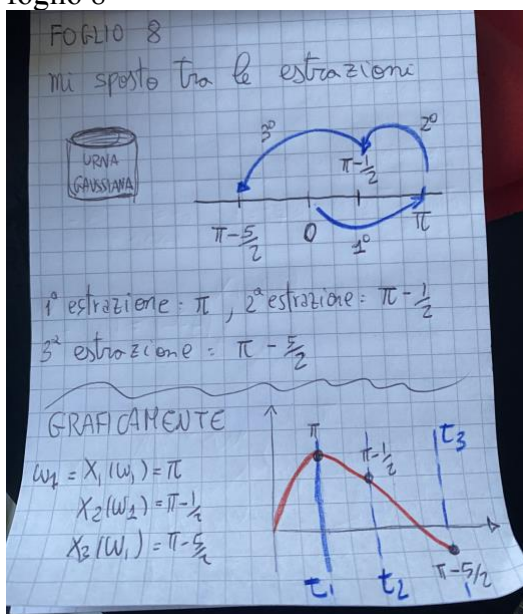 foglio 8
FOGLIO 8
mi sposto tra le estrazioni
URNA
GAUSSIANA
3° 2°
π-1/2
π-5/2 0 1° π
1ª estrazione: π, 2ª estrazione: π-1/2
3ª estrazione = π-5/2
GRAFICAMENTE
ω1 = X1(ω1) = π
X2(ω1) = π-1/2
X3(ω1) = π-5/2
π π-1/2 t3
t1 t2 π-5/2